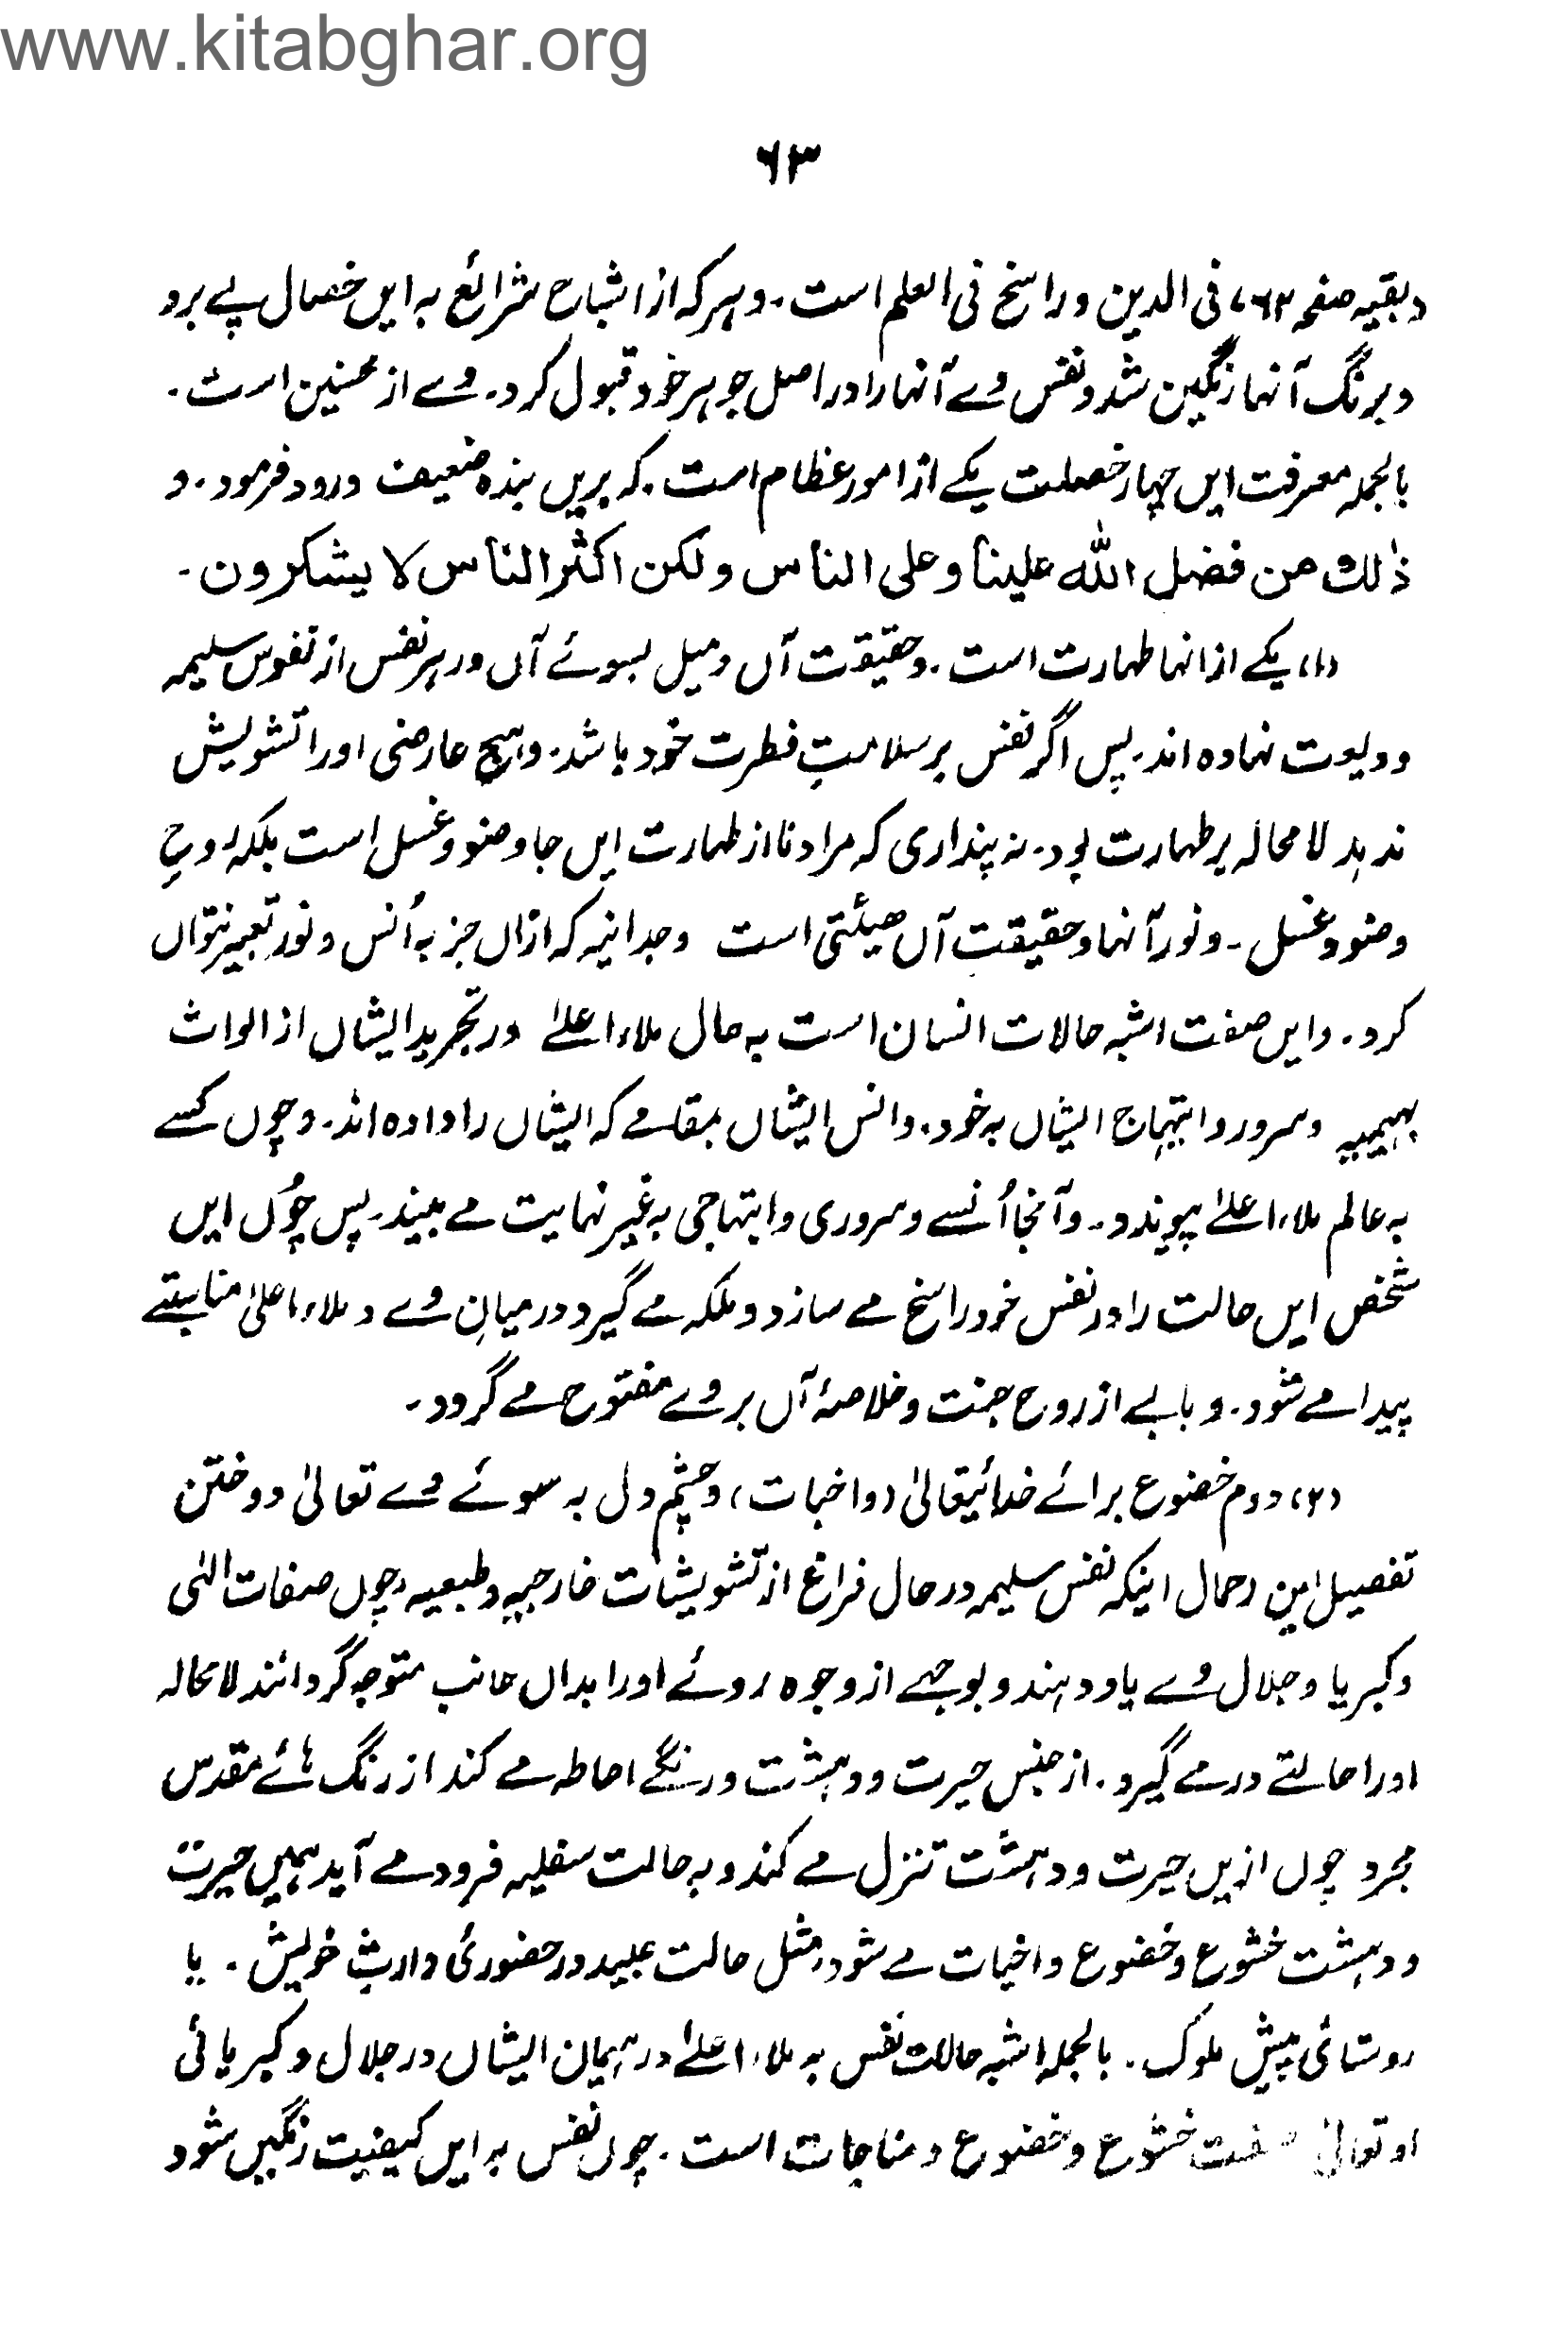 www.kitabghar.org
۶۳
(بقیہ صفحہ ۶۳) فی الدین وراسخ فی العلم است۔ وہر کہ از اشباح شرائع بہ ایں خصال پے برد
وبرنگ آنہا رنگین شد ونفس وے آنہا را در اصل جوہر خود قبول کرد۔ وے از محسنین است۔
بالجملہ معرفت ایں چہار خصلت یکے از امور عظام است۔ کہ بریں بندہ ضعیف ورود فرمود۔ و
ذٰلك من فضل الله علینا وعلی الناس ولکن اکثر الناس لا یشکرون۔
(۱) یکے ازانہا طہارت است۔ وحقیقت آں ومیل بسوئے آں در ہر نفس از نفوس سلیمہ
ودیعت نہادہ اند۔ پس اگر نفس بر سلامتِ فطرت خود باشد۔ وہیچ عارضی اورا تشویش
ندہد لا محالہ بر طہارت بود۔ نہ پنداری کہ مراد ما از طہارت ایں جا وضو وغسل است بلکہ روحِ
وضو وغسل۔ ونور آنہا وحقیقت آں ھیئتی است وجدانیہ کہ ازاں جز بہ اُنس ونور تعبیر نتواں
کرد۔ وایں صفت اشبہ حالات انسان است بہ حال ملاء اعلےٰ در تجرید ایشاں از الواث
بہیمیہ وسرور وابتہاج ایشاں بہ خود۔ وانس ایشاں بمقامے کہ ایشاں را دادہ اند۔ وچوں کسے
بہ عالم ملاء اعلےٰ پیوندد۔ وآنجا اُنسے وسروری وابتہاجی بہ غیر نہایت مے بیند۔ پس چُوں ایں
شخص ایں حالت را در نفس خود راسخ مے سازد وملکہ مے گیرد درمیانِ وے و ملاء اعلیٰ مناسبتے
پیدا مے شود۔ وبابے از روح جنت وخلاصۂ آں بر وے مفتوح مے گردد۔
(۲) دوم خضوع برائے خدائیتعالیٰ (واخبات) وچشم دل بہ سوئے وے تعالیٰ دوختن
تفصیل این اجمال اینکہ نفس سلیمہ در حال فراغ از تشویشات خارجیہ وطبعیہ چوں صفات الٰہی
وکبریا وجلال وے یاد دہند وبوجہے از وجوہ روئے اورا بداں جانب متوجہ گردانند لا محالہ
اورا حالتے در مے گیرد۔ از جنس حیرت ودہشت ورنگے احاطہ مے کند از رنگ ہائے مقدس
مجرد چوں ازیں حیرت ودہشت تنزل مے کند وبہ حالت سفلیہ فرود مے آید ہمیں حیرت
ودہشت خشوع وخضوع واخبات مے شود۔ مثل حالت عبید در حضوری وارثِ خویش۔ یا
روستائی پیش ملوک۔ بالجملہ اشبہ حالات نفس بہ ملاء اعلےٰ در ہیمان ایشاں در جلال وکبریائی
او تعالیٰ صفت خشوع وخضوع ومناجات است۔ چوں نفس بہ ایں کیفیت رنگیں شود